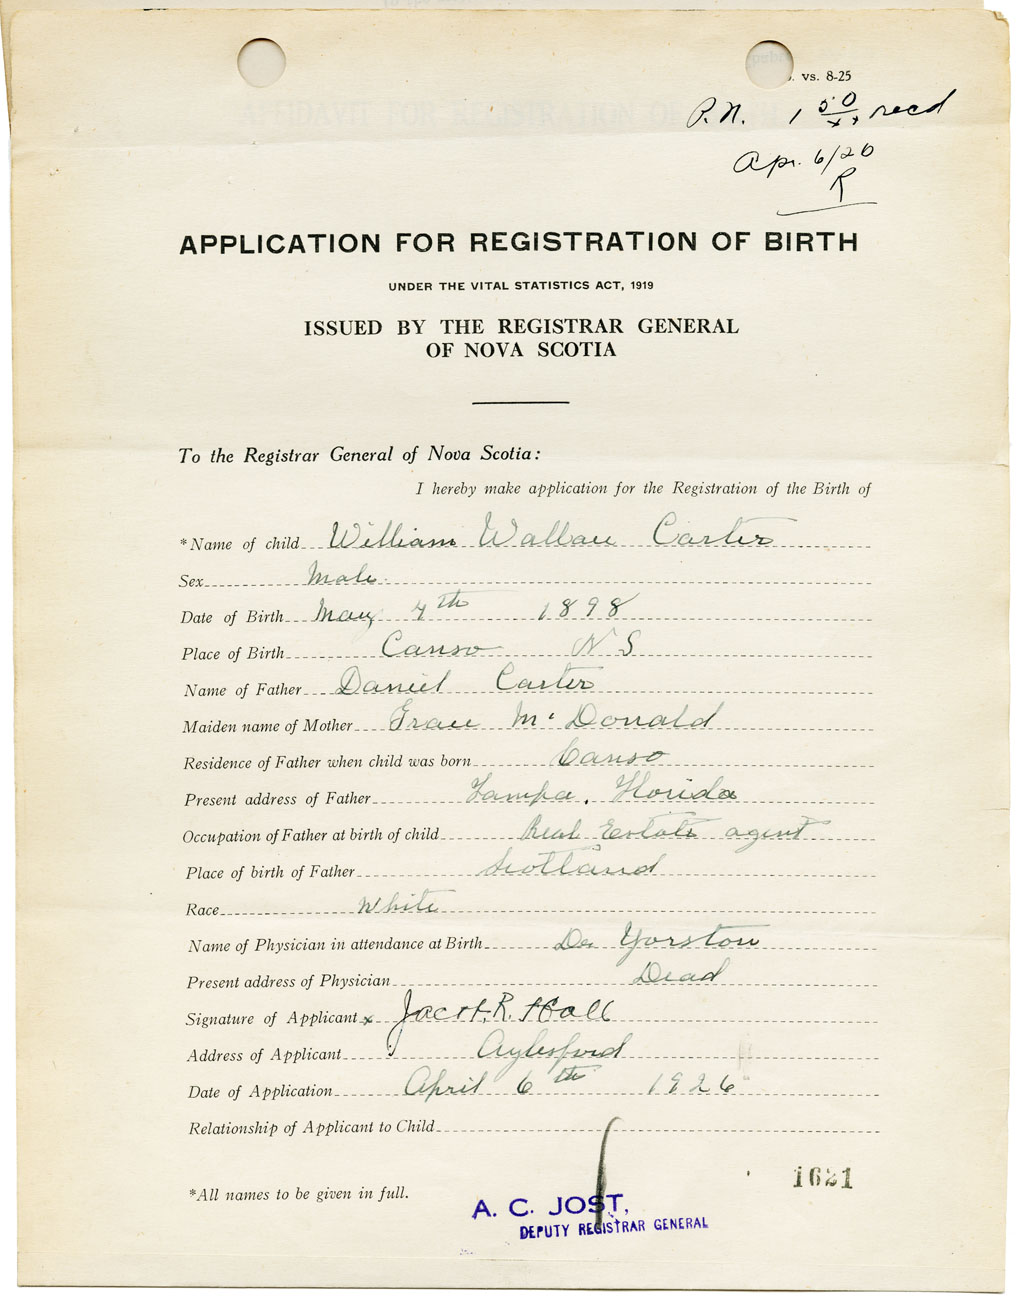 vs. 8-25
P.N. 1 50/xx recd
Apr. 6/26
R
APPLICATION FOR REGISTRATION OF BIRTH
UNDER THE VITAL STATISTICS ACT, 1919
ISSUED BY THE REGISTRAR GENERAL
OF NOVA SCOTIA
To the Registrar General of Nova Scotia:
I hereby make application for the Registration of the Birth of
*Name of child William Wallace Carter
Sex Male
Date of Birth May 4th 1898
Place of Birth Canso N S
Name of Father Daniel Carter
Maiden name of Mother Grace Mc Donald
Residence of Father when child was born Canso
Present address of Father Tampa, Florida
Occupation of Father at birth of child Real Estate agent
Place of birth of Father Scotland
Race White
Name of Physician in attendance at Birth Dr Yorston
Present address of Physician Dead
Signature of Applicant x R. Hall
Address of Applicant Aylesford
Date of Application April 6th 1926
Relationship of Applicant to Child
1621
*All names to be given in full.
A. C. JOST,
DEPUTY REGISTRAR GENERAL